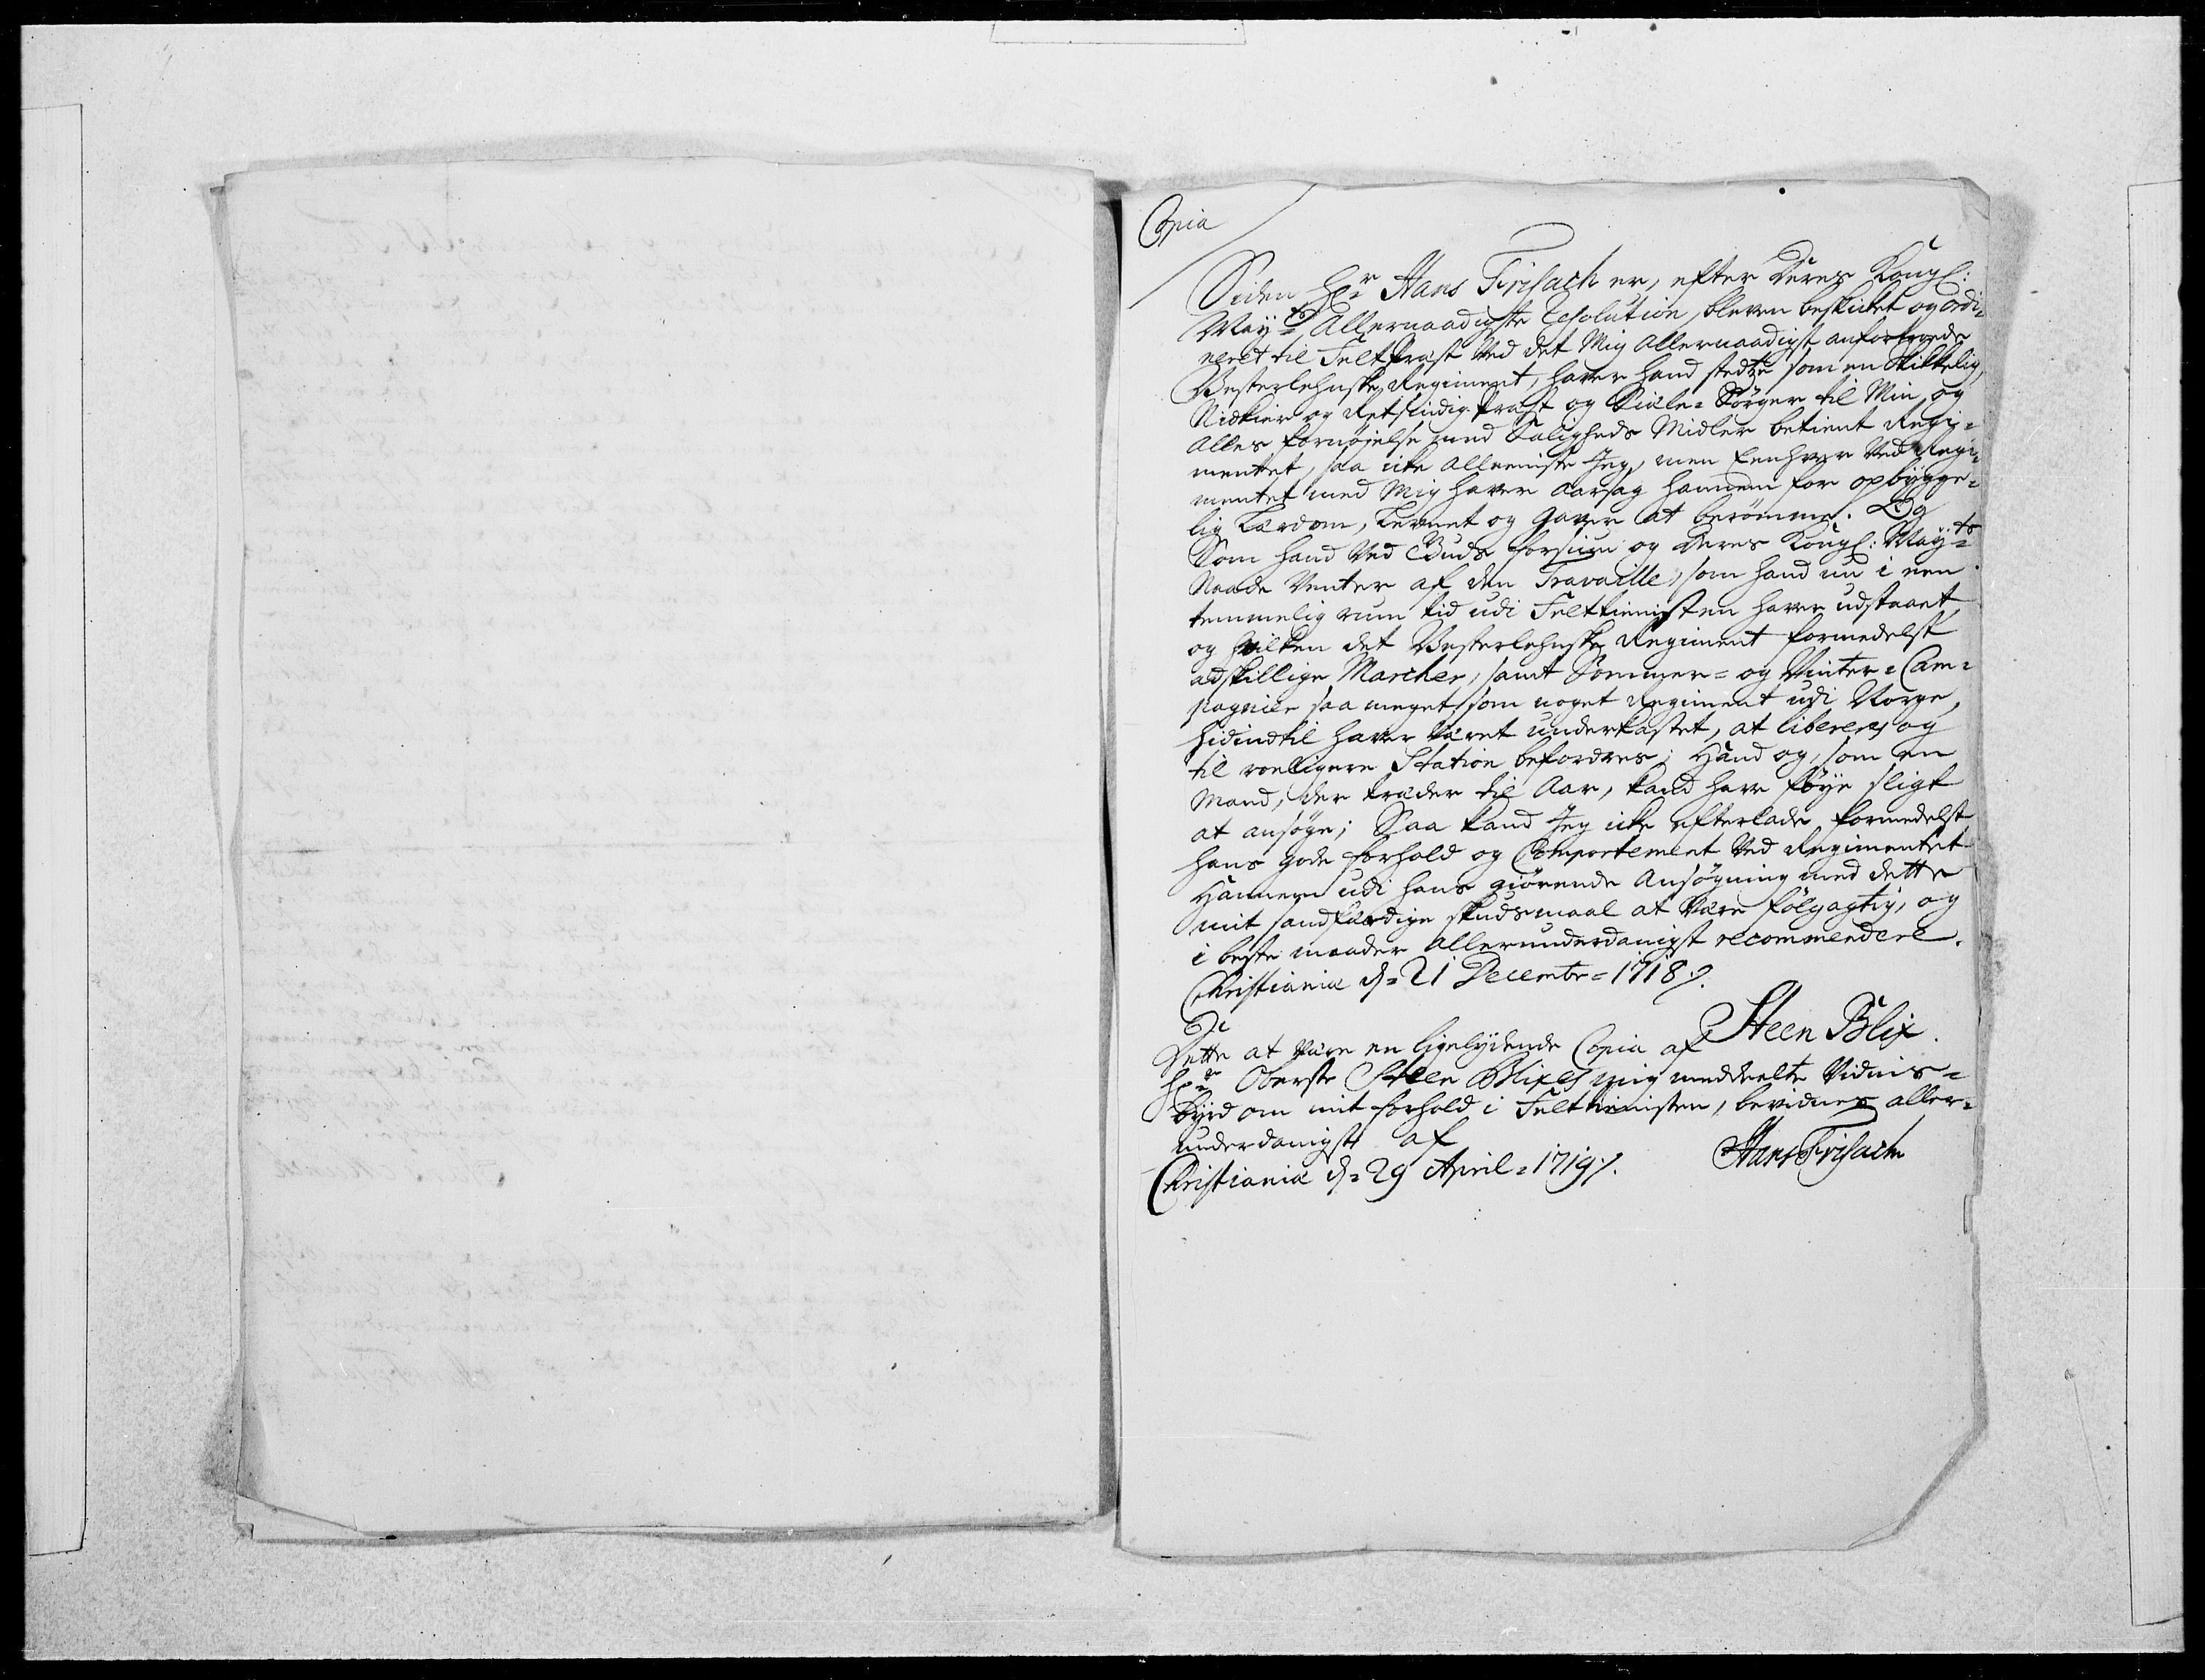 Copia
Siden Hr Hans Frisach er, efter Deres Kongl:
May:ts Allernaadigste Resolution, bleven beskicket og ordi=
neret til Feltpræst Ved det Mig Allernaadigst anfortroede
Vesterlehnske Regiment, haver hand stedtze som en Skikkelig,
Nidkier og Retsindig Præst og Siæle=Sørger til Min og
Alles fornøjelse med Saligheds Midler betient Regi=
mentet, saa icke alleeniste Jeg, men Eenhver Ved Regi=
mentet med Mig haver Aarsag hannem for opbygge=
lig Lærdom, Levnet og Gaver at berømme. Og
Som hand Ved Guds forsiun og Deres Kongl: May:ts
Naade Venter af den Travaille, som hand nu i een
temmelig rum tid udi Felttienisten haver udstaaet,
og hvilken det Vesterlehnske Regiment formedelst
adskillige Marcher, samt Sommer= og Vinter=Cam=
pagnier saa meget som noget Regiment udi Norge,
hidindtil haver været underkastet, at liberes og
til roeligere Station befordres; Hand og, som en
Mand, der træder til Aar, kand have føye sligt
at ansøge; Saa kand Jeg icke efterlade formedelst
hans gode forhold og Comportement Ved Regimentet
Hannem udi hans giørende Ansøgning med dette
mit sandfærdige skudsmaal at være følgagtig, og
i beste maader allerunderdanigst recommendere.
Christiania d. 21 Decembr= 1718.
Steen Blix.
Dette at være en ligelydende Copia af
Hr Oberste Steen Blixes mig meddeelte Vidnis=
byrd om mit forhold i Felttienisten, bevidnes aller=
underdanigst af
Hans Frisach
Christiania d. 29 April= 1719.